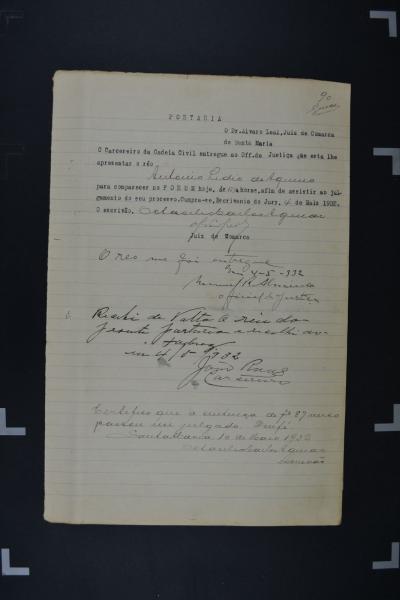 90
PORTARIA
O Dr. Alvaro Leal, Juiz de Comarca
de Santa Maria
O Carcereiro da Cadeia Civil entregue ao Off.da Justiça que esta lhe
apresentar o réo
Antonio Pedro de Aquino
para comparecer no FORUM hoje, ás horas, afim de assistir ao jul-
gamento do seu processo. Cumpra-se, Escrivania do Jury, 4 de Maio 1932.
O escrivão, Octavilio Carlos Aguiar
Juiz de Comarca
O reo me foi entregue
Em 4-5-932
Almeida
official de Justiça
Recebi de Volta o réu da
fronte portaria e recolhi ao
em 4/5/932
João
Carcereiro
Certifico que a sentença de fs 87 verso
passou em julgado. Doufé
Santa Maria 10 de Maio 1932
Octavilio Carlos Aguiar
Escrivão